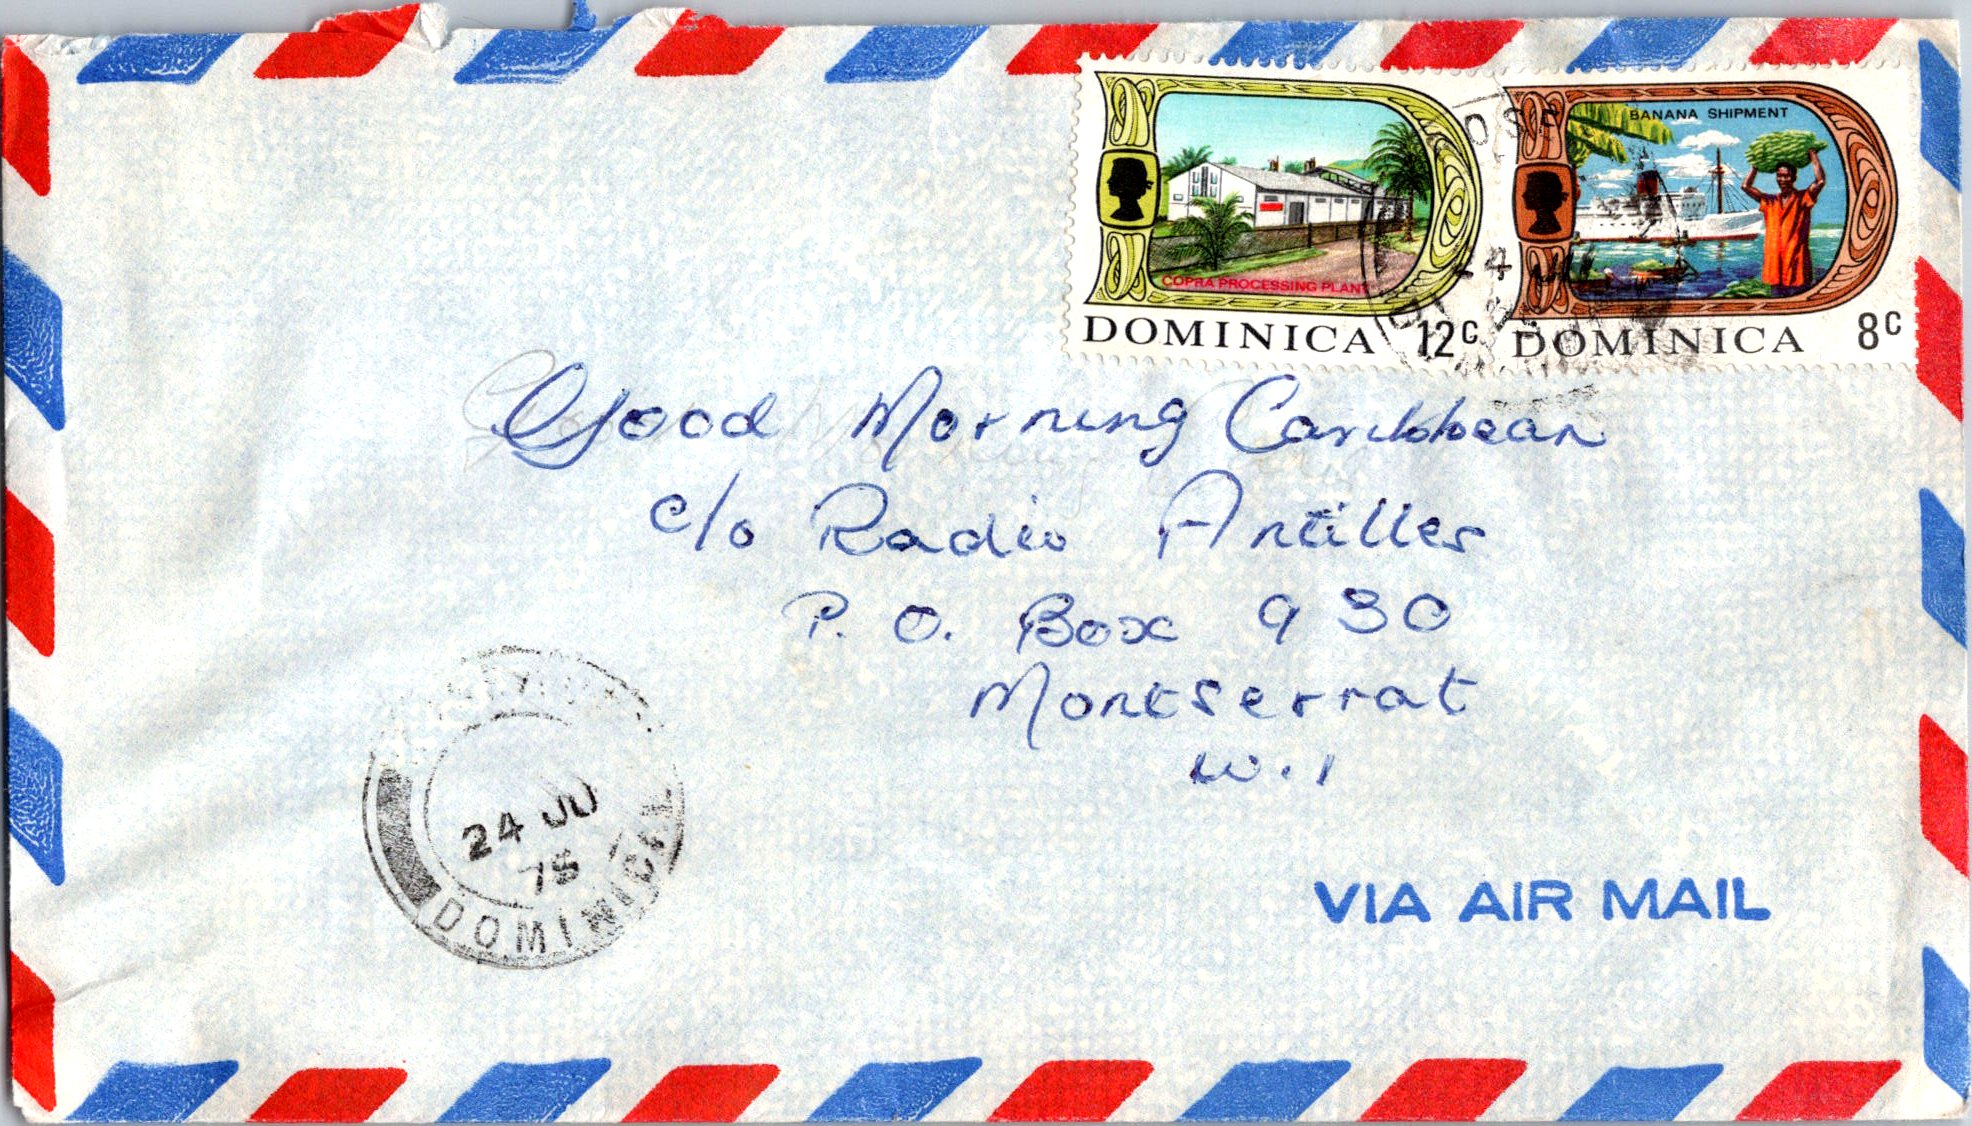 BANANA SHIPMENT
COPRA PROCESSING PLANT
DOMINICA 12c
DOMINICA 8c
24
Good Morning Caribbean
c/o Radio Antilles
P. O. Box 930
Montserrat
W.I
24 JU
75
DOMINICA
VIA AIR MAIL